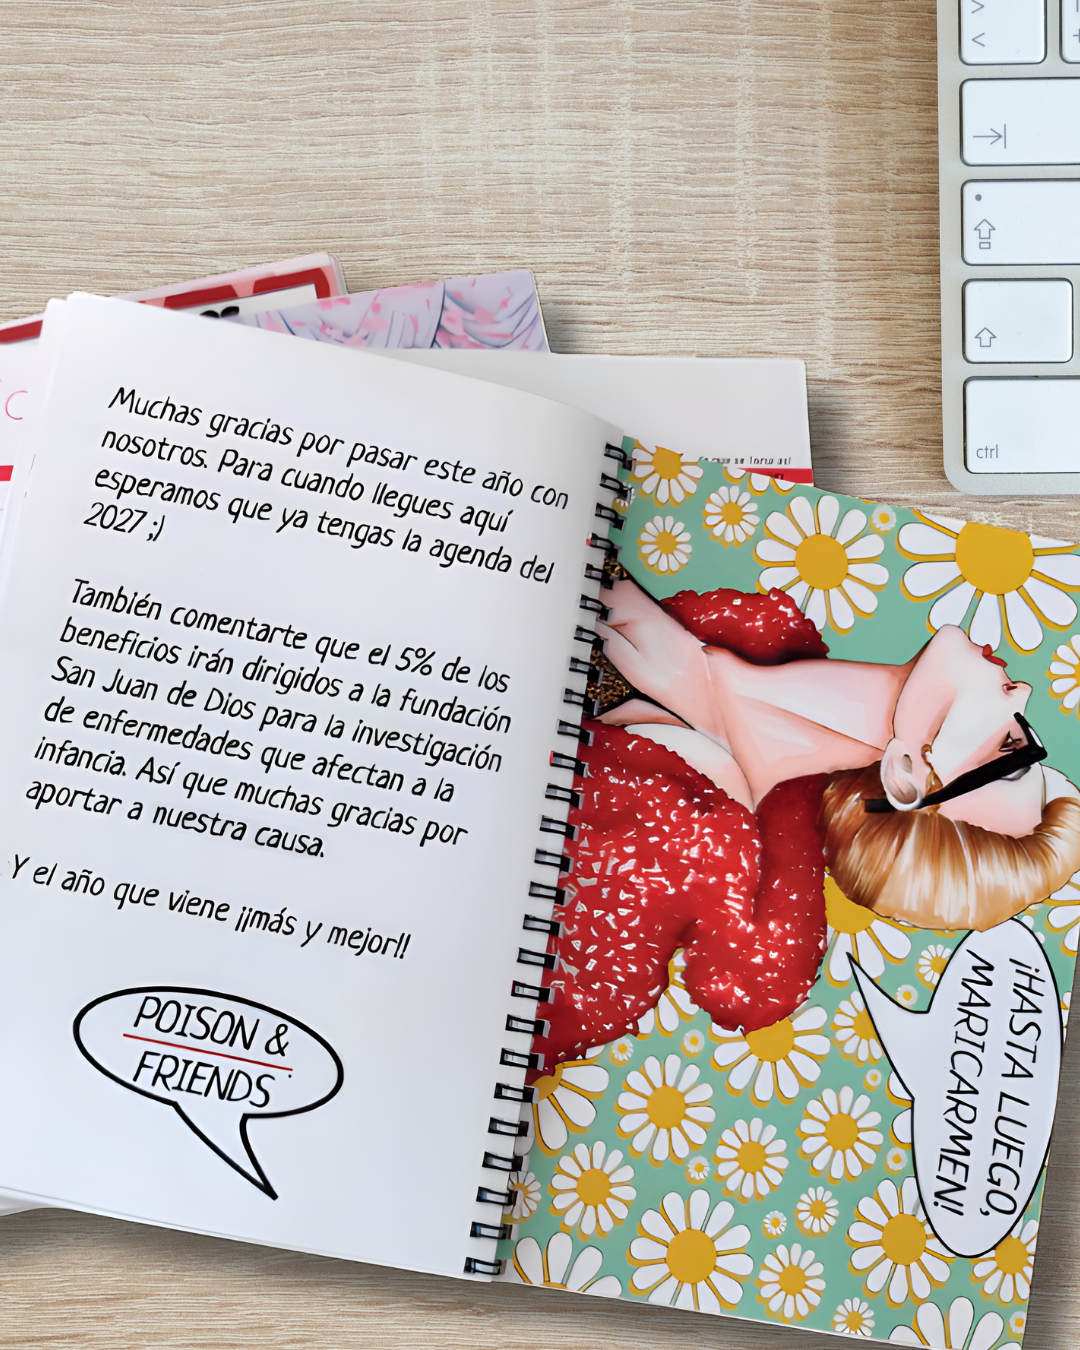 Muchas gracias por pasar este año con
nosotros. Para cuando llegues aquí
esperamos que ya tengas la agenda del
2027 ;)
También comentarte que el 5% de los
beneficios irán dirigidos a la fundación
San Juan de Dios para la investigación
de enfermedades que afectan a la
infancia. Así que muchas gracias por
aportar a nuestra causa.
Y el año que viene ¡¡más y mejor!!
POISON &
FRIENDS
¡HASTA LUEGO,
MARICARMEN!
ctrl